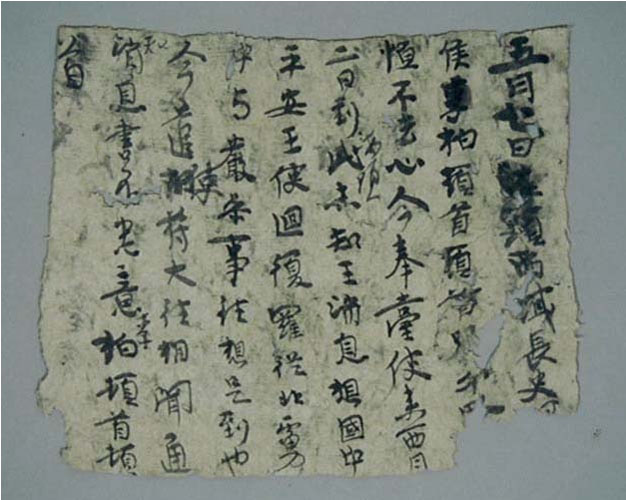 五月七日海頭西域長史
侯李柏頓首頓首
恒不去心今奉臺使來西月
二日到此海頭未知王消息想國中
平安王使迴復羅從北虜
中與嚴參事往想是到也
今遣使苻大往相聞通
知消息書不悉意李柏頓首頓
首